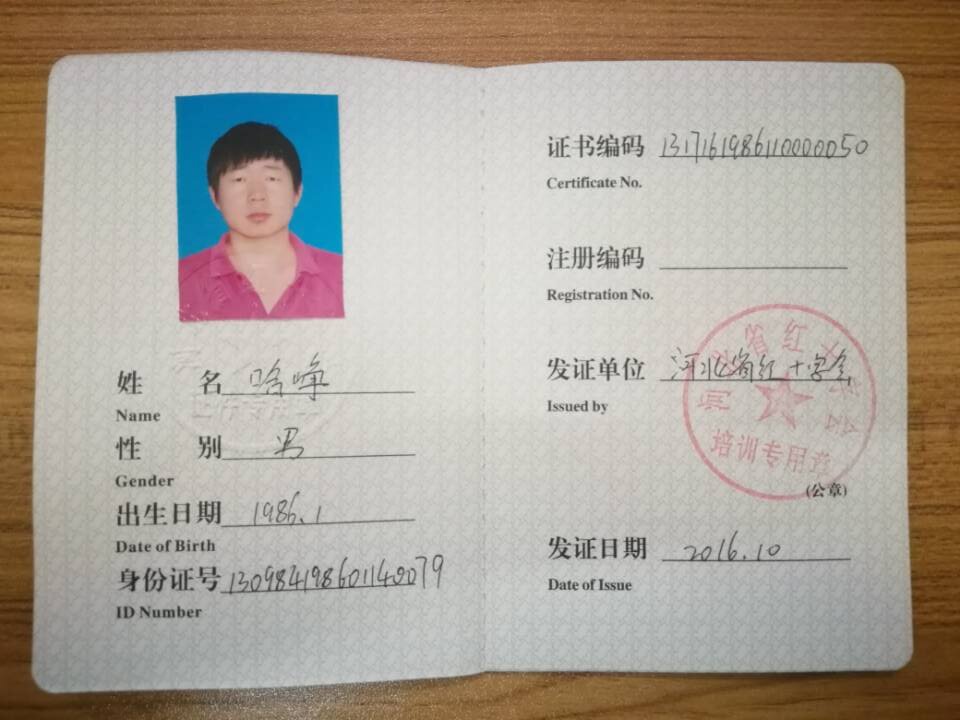 姓 名 哈峥
Name
性 别 男
Gender
出生日期 1986.1
Date of Birth
身份证号 130984198601140079
ID Number
证书编码 1317161986110000050
Certificate No.
注册编码
Registration No.
发证单位 河北省红十字会
Issued by
省红十
培训专用章
(公章)
发证日期 2016.10
Date of Issue